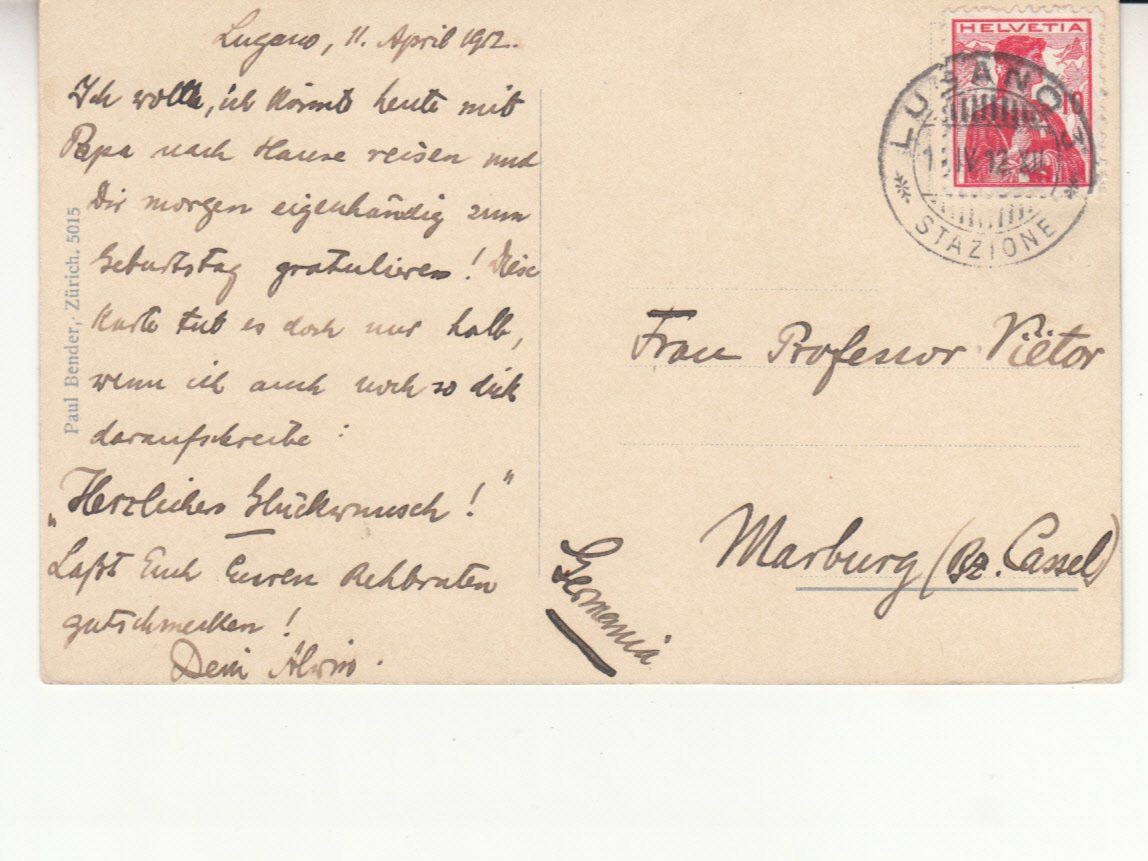 Lugano, 11. April 1912.
Ich wollte, ich könnte heute mit
Papa nach Hause reisen und
Dir morgen eigenhändig zum
Geburtstag gratulieren! Diese
Karte tut es doch nur halb,
wenn ich auch noch so dick
daraufschreibe:
"Herzlichen Glückwunsch!"
Laßt Euch Euren Rehbraten
gutschmecken!
Dein
Paul Bender, Zürich. 5015
HELVETIA
10
LUGANO
IV.12.XII
STAZIONE
Frau Professor Viëtor
Marburg (Bz. Cassel)
Germania